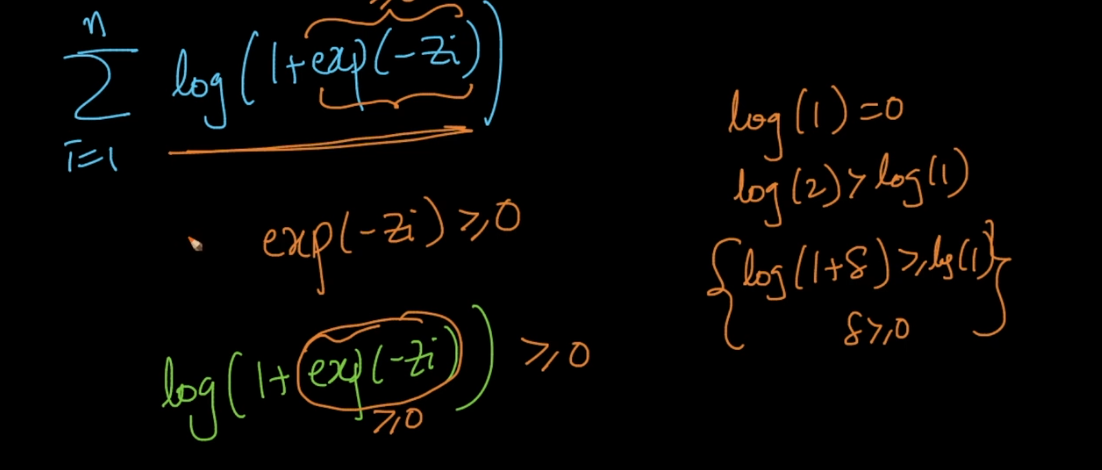 n
∑ log(1+exp(-zi))
i=1
exp(-zi) ≥ 0
log(1+exp(-zi)) ≥ 0
≥ 0
log(1) = 0
log(2) > log(1)
{log(1+δ) ≥ log(1)}
δ ≥ 0